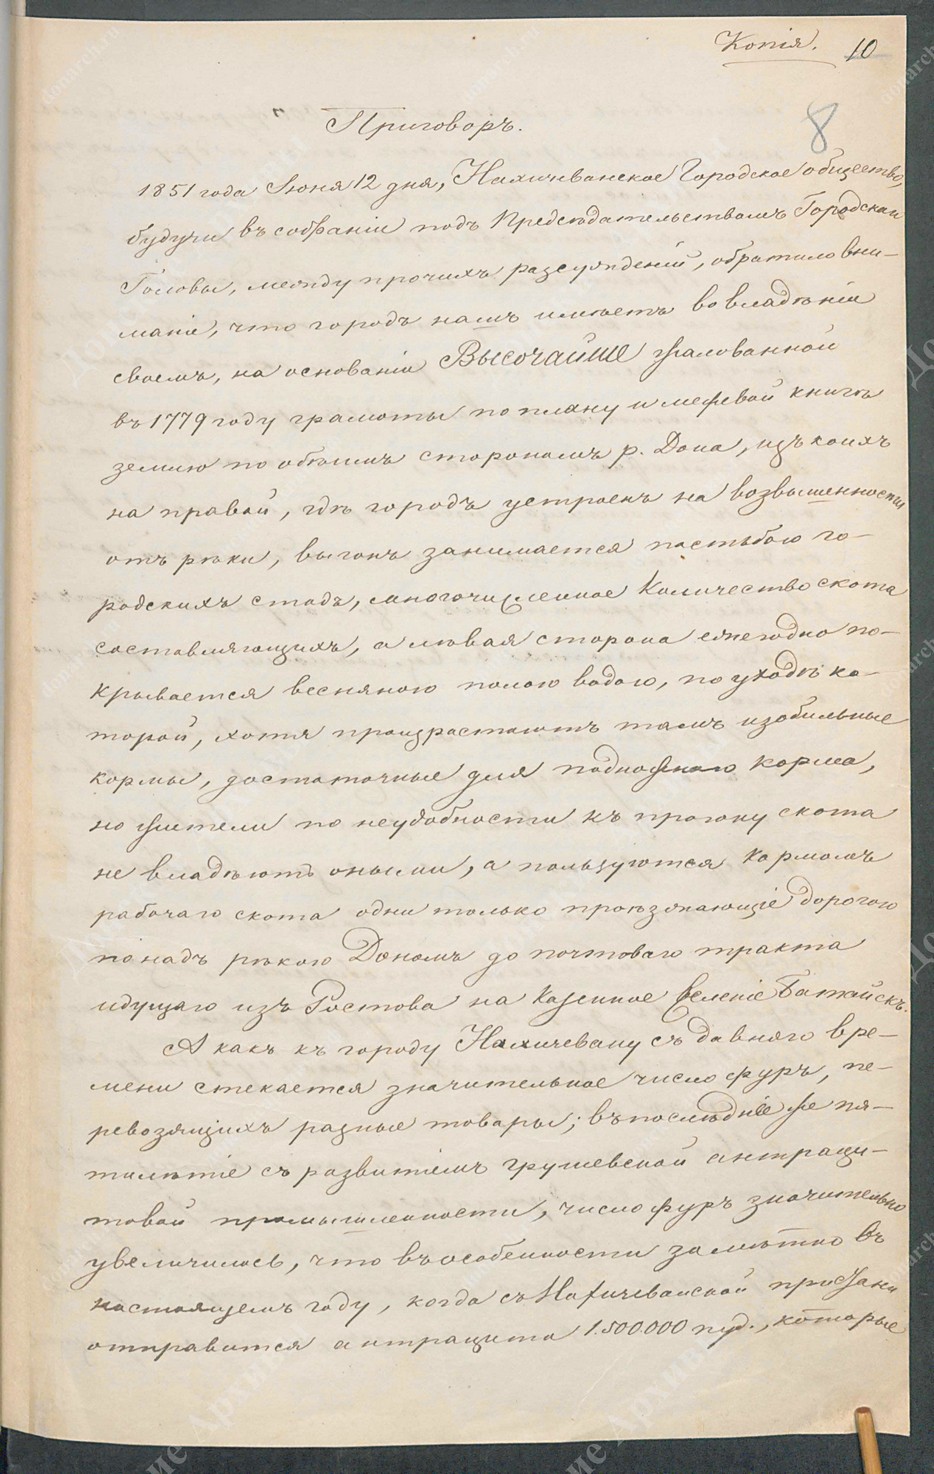 Копія. 10
8
Приговоръ.
1851 года Іюня 12 дня, Нахичеванское Городское общество,
будучи въ собраніи подъ Предсѣдательствомъ Городскаго
Головы, между прочихъ разсужденій, обратило вни-
маніе, что городъ нашъ имѣетъ во владѣніи
своемъ, на основаніи ВЫСОЧАЙШЕ жалованной
въ 1779 году грамоты по плану и межевой книгѣ
землю по обоимъ сторонамъ р. Дона, изъ коихъ
на правой, гдѣ городъ устроенъ на возвышенности
отъ рѣки, выгонъ занимается пастьбою го-
родскихъ стадъ, многочисленное количество скота
составляющихъ, а лѣвая сторона ежегодно по-
крывается весняною полою водою, по уходѣ ко-
торой, хотя произрастаютъ тамъ изобильные
кормы, достаточные для подножнаго корма,
но жители по неудобности къ прогону скота
не владѣютъ оными, а пользуются кормомъ
рабочаго скота одни только проѣзжающіе дорогою
по надъ рѣкою Дономъ до почтоваго тракта
идущаго изъ Ростова на казенное селеніе Батайскъ.
А какъ къ городу Нахичевану съ давняго вре-
мени стекается значительное число фуръ, пе-
ревозящихъ разные товары; въ послѣдніе же пя-
тилѣтіе съ развитіемъ грушевской антраци-
товой промышленности, число фуръ значительно
увеличилось, что въ особенности замѣтно въ
настоящемъ году, когда съ Нахичеванской продажи
отправится антрацита 1.500.000 пуд., которые